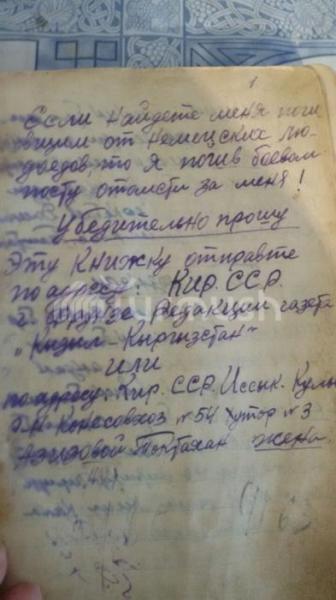 1
Если найдете меня поги
бшим от немецских лю
доедов, то я погиб в боевом
посту отомсти за меня!
Убедительно прошу
Эту книжку отправте
по адресу Кир. ССР.
г. Фрунзе, Редакции газета
"Кизил-Кыргызстан"
или
по адресу: Кир. ССР. Иссык-Куль
Конесовхоз №54 хутор №3
Азизовой Токтахан жена.